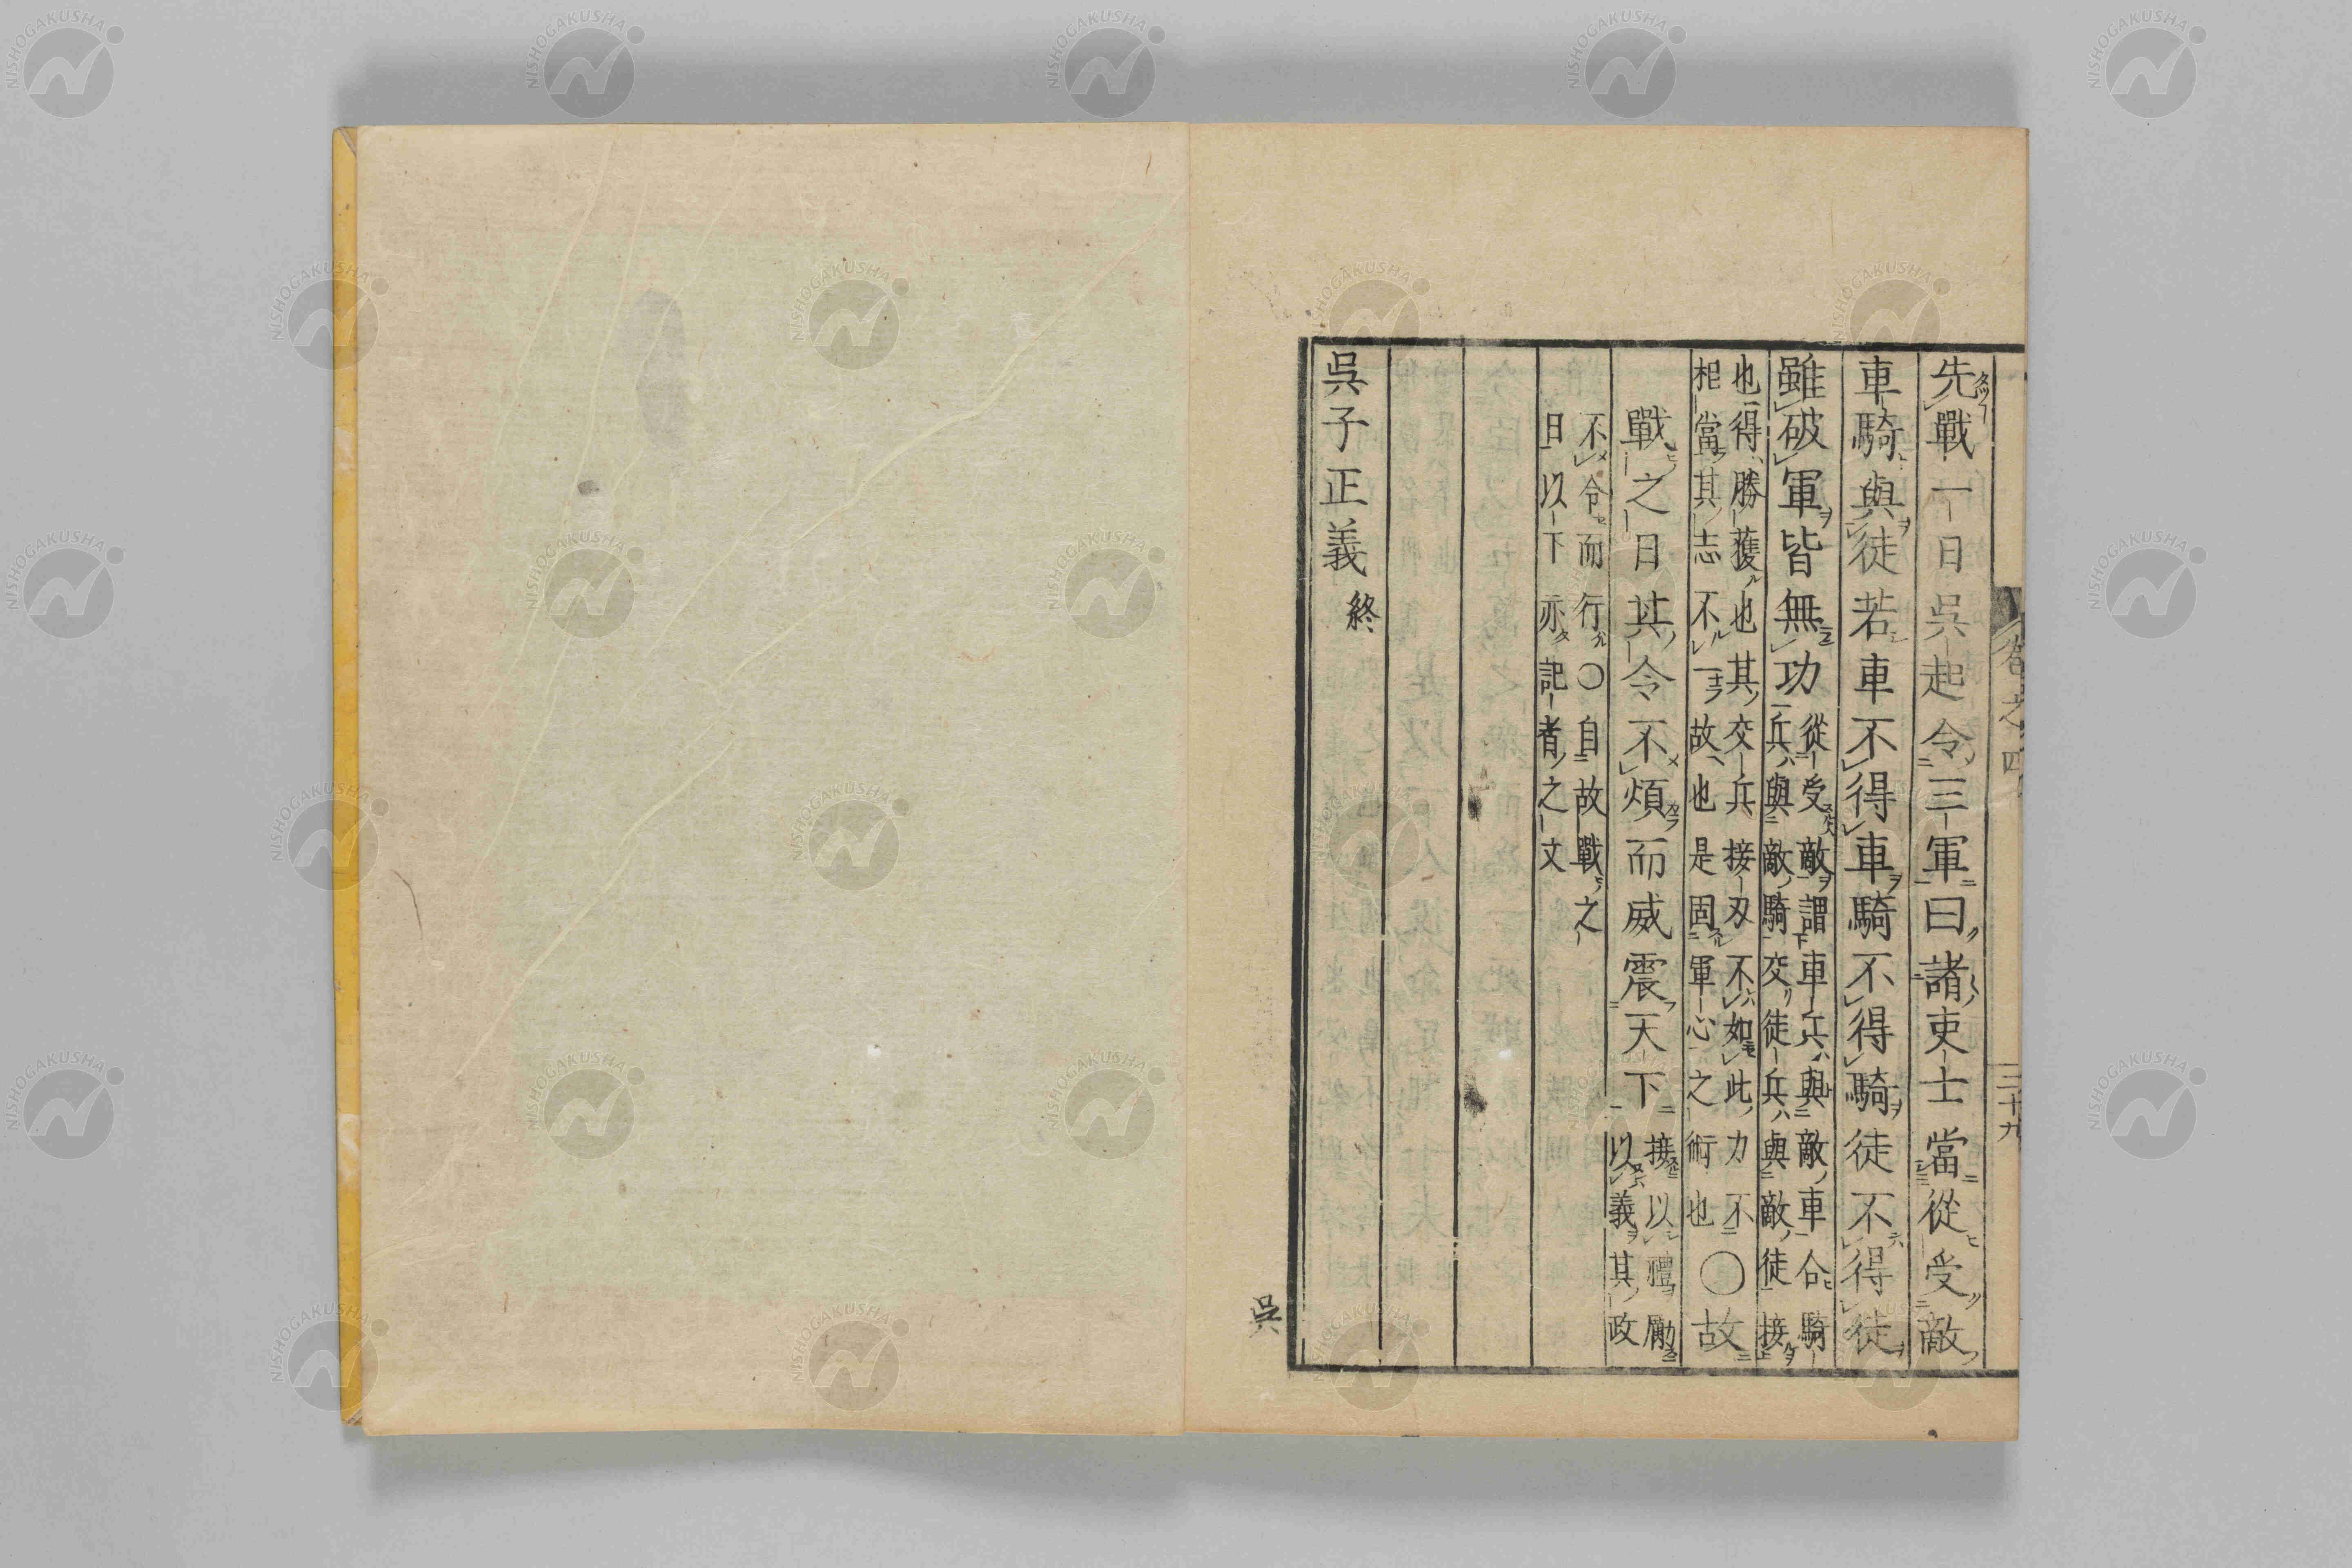 卷之四
三十九
先戰一日吳起令三軍曰諸吏士當從受敵
車騎與徒若車不得車騎不得騎徒不得徒
雖破軍皆無功
從受敵謂車兵與敵車合騎
兵與敵騎交徒兵與敵徒接
也得勝獲也其交兵接刃不如此力不
相當其志不一故也是固軍心之術也
○故
戰之日其令不煩而威震天下
接以禮勵
以義其政
不令而行○自故戰之
日以下亦記者之文
吳子正義終
吳
NISHOGAKUSHA